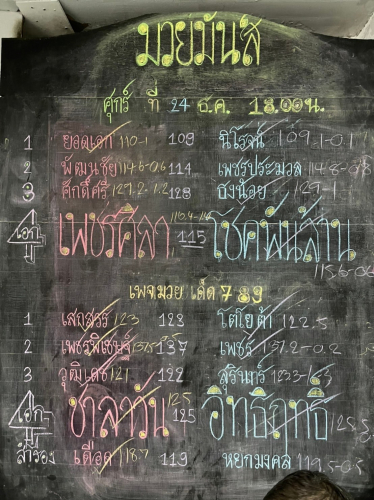 มวยมันส์
ศุกร์ ที่ 24 ธ.ค. 18.00น.
1 ยอดเอก 110-1 109 นิโรจน์ 109.1-0.1
2 พัฒนชัย 114.6-0.6 114 เพชรประมวล 114.8-0.8
3 ศักดิ์ศรี 129.2-1.2 128 ธงน้อย 129-1
เอก เพชรศิลา 115 โชคพันล้าน 115.6-0.6
เพจมวย เด็ด 789
1 เสกสรร 123 123 โตโอต้า 122.5
2 เพชรพิเชษฐ์ 137 เพชร 137.2-0.2
3 วุฒิเดช 121 122 สุรินทร์
เอก ชาลาวัน 125 125 อิทธิฤทธิ์
สำรอง เดือด 118.7 119 หยกมงคล 119.5-0.5